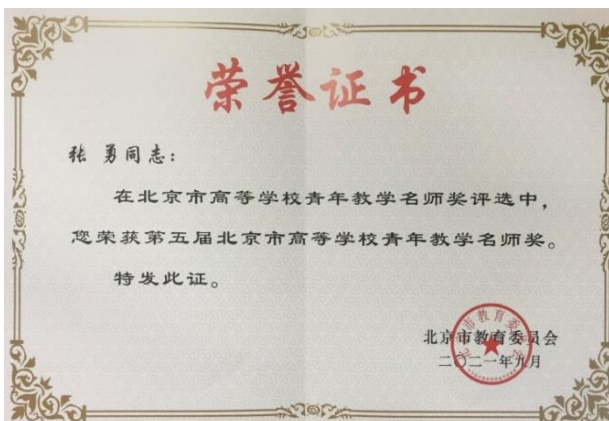 荣誉证书
张 勇同志：
在北京市高等学校青年教学名师奖评选中，
您荣获第五届北京市高等学校青年教学名师奖。
特发此证。
北京市教育委员会
二〇二一年九月
北京市教育委员会